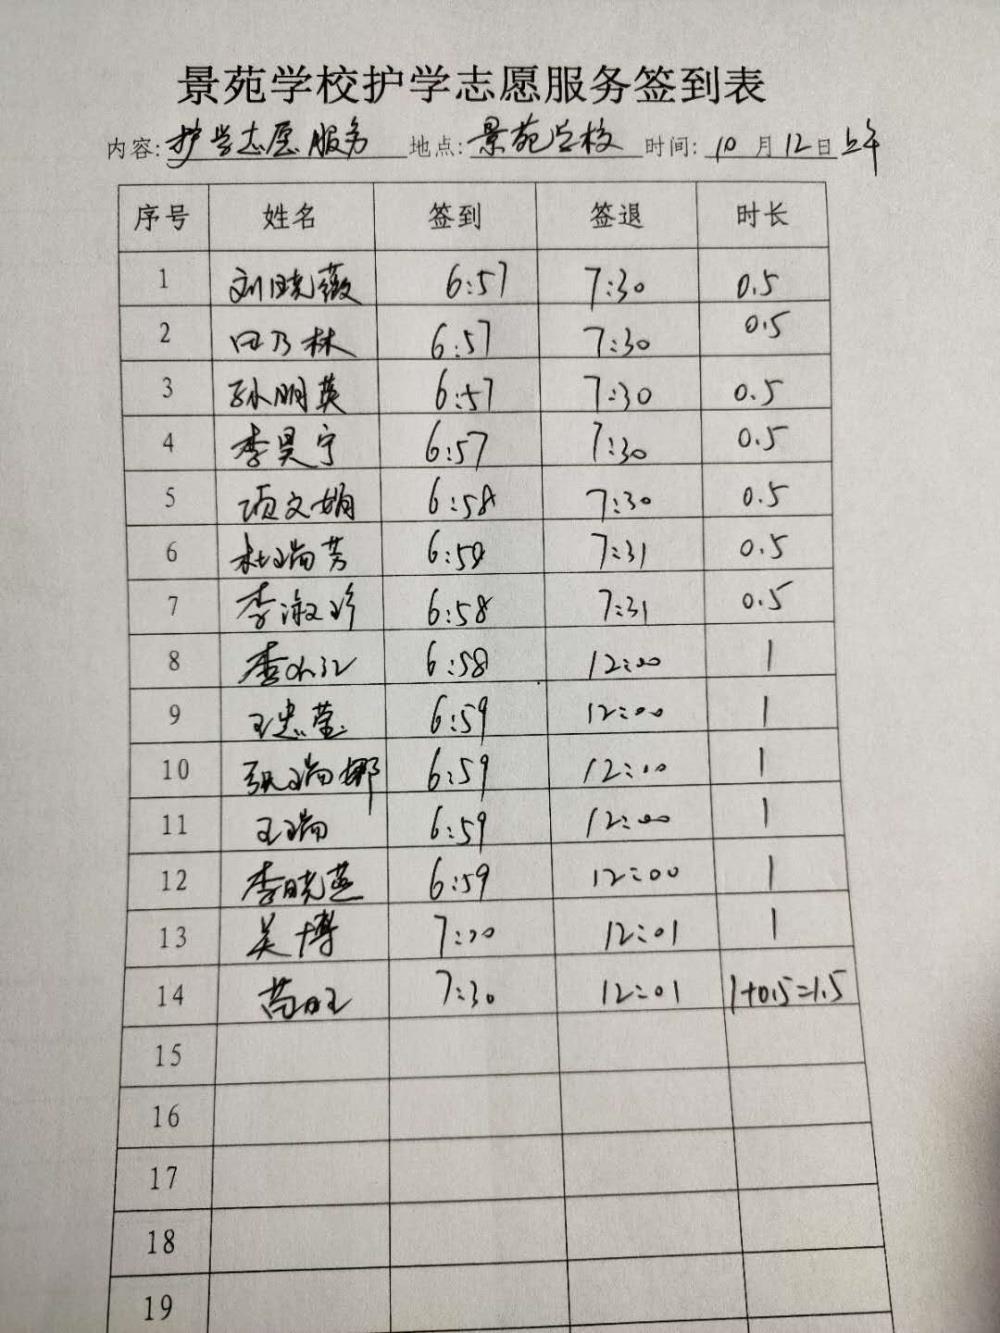 景苑学校护学志愿服务签到表
内容: 护学志愿服务 地点: 景苑学校 时间: 10 月 12 日 上午
序号 姓名 签到 签退 时长
1 刘晓薇 6:57 7:30 0.5
2 田乃林 6:57 7:30 0.5
3 孙明英 6:57 7:30 0.5
4 李昊宁 6:57 7:30 0.5
5 项文娟 6:58 7:30 0.5
6 杜瑞芳 6:58 7:31 0.5
7 李淑珍 6:58 7:31 0.5
8 6:58 12:00 1
9 王忠莹 6:59 12:00 1
10 张瑞娜 6:59 12:00 1
11 王瑞 6:59 12:00 1
12 李晓燕 6:59 12:00 1
13 吴博 7:00 12:01 1
14 7:30 12:01 1+0.5=1.5
15
16
17
18
19